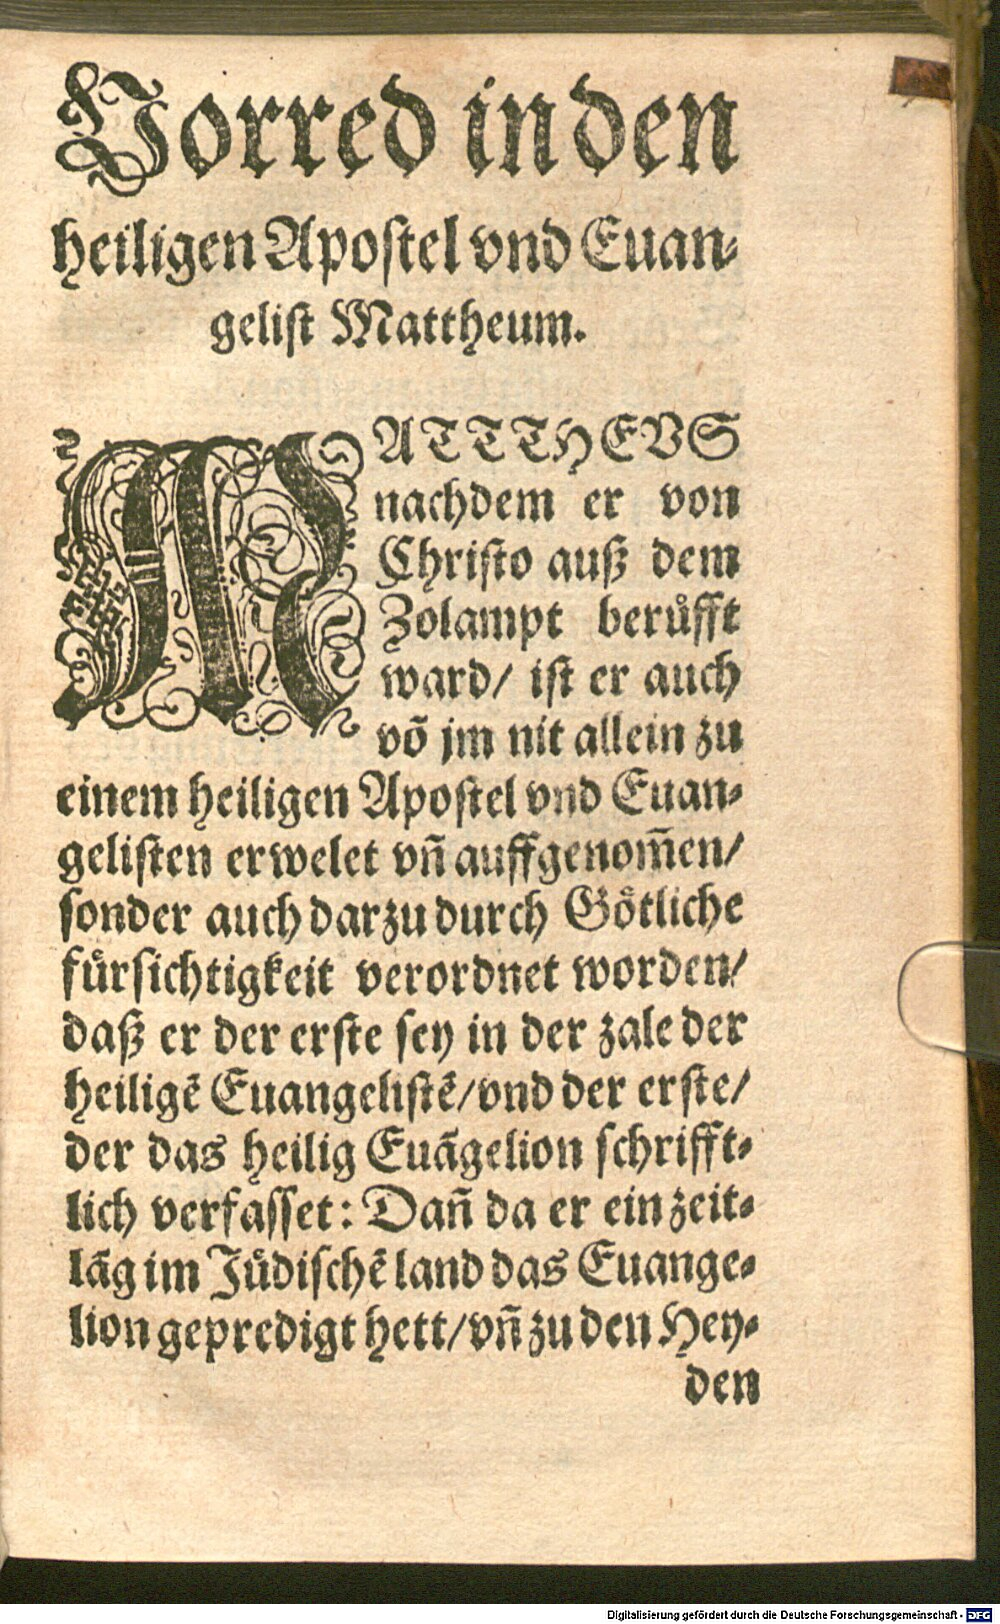 Vorred in den
heiligen Apostel vnd Euan⸗
gelist Mattheum.
MATTTHEVS
nachdem er von
Christo auß dem
Zolampt beruͤfft
ward/ ist er auch
võ jm nit allein zu
einem heiligen Apostel vnd Euan⸗
gelisten erwelet vñ auffgenom̃en/
sonder auch darzu durch Goͤtliche
fuͤrsichtigkeit verordnet worden/
daß er der erste sey in der zale der
heiligẽ Euangelistẽ/ vnd der erste/
der das heilig Euãgelion schrifft⸗
lich verfasset: Dañ da er ein zeit⸗
lãg im Juͤdischẽ land das Euange⸗
lion gepredigt hett/ vñ zu den Hey⸗
den
Digitalisierung gefördert durch die Deutsche Forschungsgemeinschaft - DFG